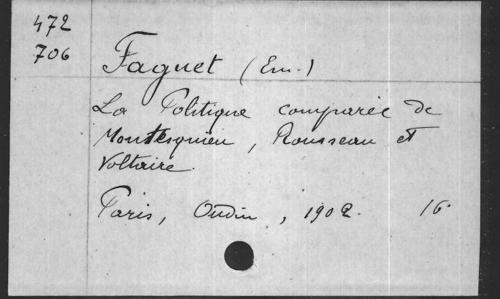 472
706
Faguet (Em.)
La Politique comparée de
Montesquieu, Rousseau et
Voltaire.
Paris, Oudin, 1902. 16.